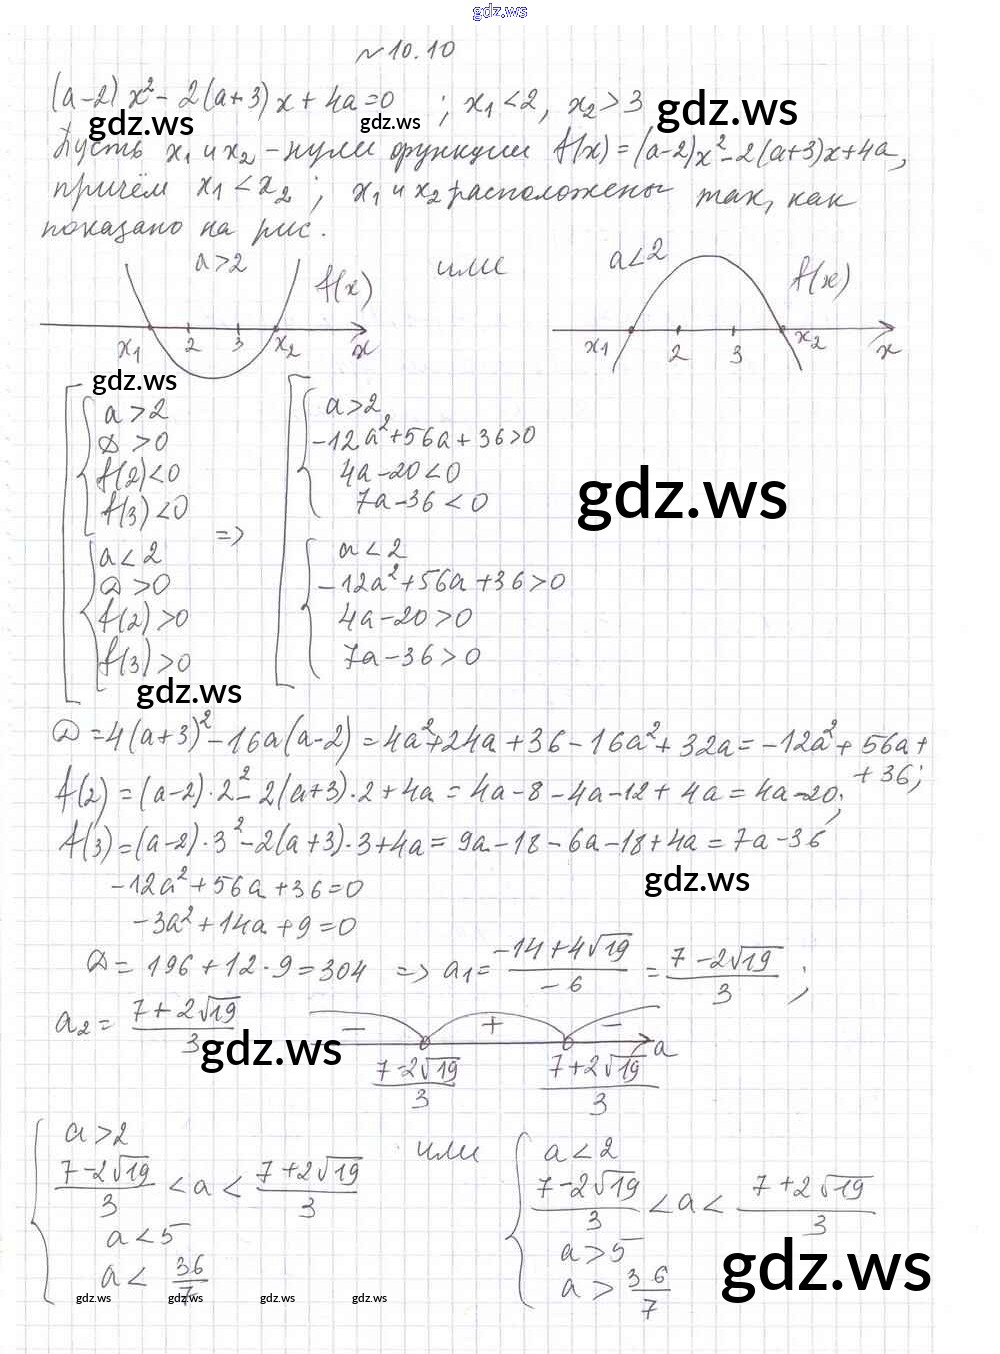 gdz.ws
№10.10
(a-2)x²-2(a+3)x+4a=0 ; x₁<2, x₂>3
gdz.ws gdz.ws gdz.ws
Пусть x₁ и x₂ - нули функции f(x)=(a-2)x²-2(a+3)x+4a,
причём x₁<x₂ ; x₁ и x₂ расположены так, как
показано на рис.
a>2 или a<2
f(x) f(x)
x₁ 2 3 x₂ x x₁ 2 3 x₂ x
gdz.ws
a>2 a>2
D>0 -12a²+56a+36>0
f(2)<0 4a-20<0
f(3)<0 7a-36<0
gdz.ws
=>
a<2 a<2
D>0 -12a²+56a+36>0
f(2)>0 4a-20>0
f(3)>0 7a-36>0
gdz.ws
D=4(a+3)²-16a(a-2)=4a²+24a+36-16a²+32a=-12a²+56a+
+36;
f(2)=(a-2)·2²-2(a+3)·2+4a=4a-8-4a-12+4a=4a-20;
f(3)=(a-2)·3²-2(a+3)·3+4a=9a-18-6a-18+4a=7a-36
-12a²+56a+36=0
gdz.ws
-3a²+14a+9=0
D=196+12·9=304 => a₁=(-14+4√19)/-6=(7-2√19)/3 ;
a₂=(7+2√19)/3 - + -
gdz.ws
(7-2√19)/3 (7+2√19)/3 a
a>2 или a<2
(7-2√19)/3<a<(7+2√19)/3 (7-2√19)/3<a<(7+2√19)/3
a<5 a>5
a<36/7 a>36/7
gdz.ws
gdz.ws gdz.ws gdz.ws gdz.ws